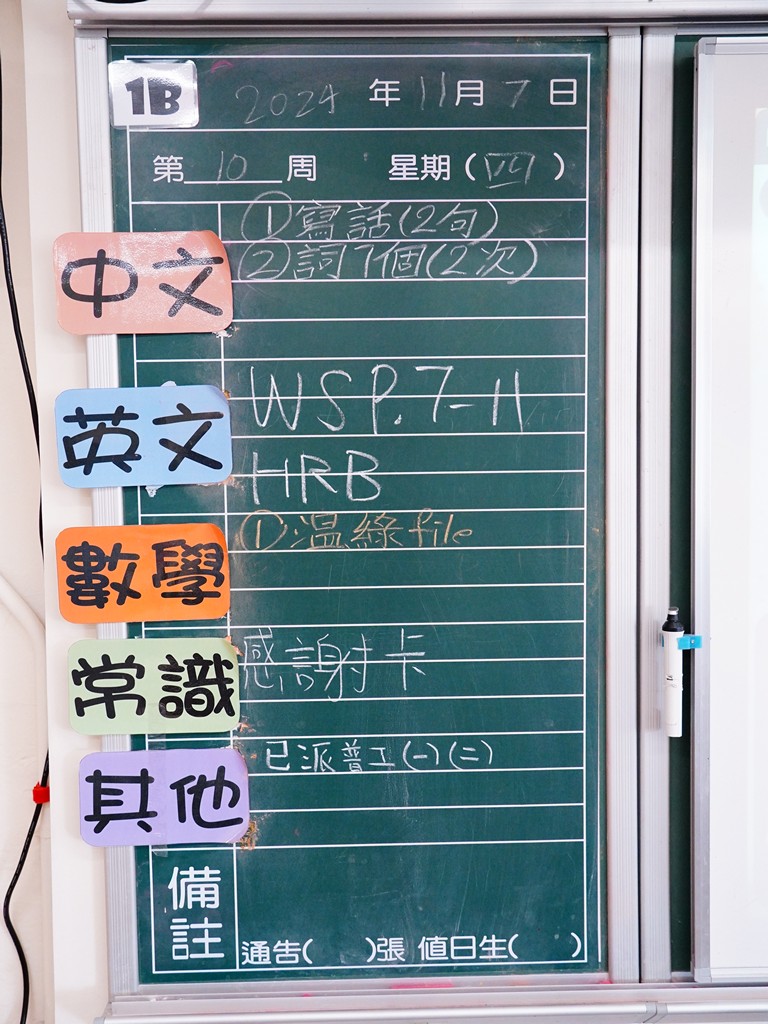 1B
2024 年 11 月 7 日
第 10 周 星期(四)
中文
①寫話(2句)
②詞7個(2次)
英文
WS P.7-11
HRB
數學
①溫綠file
常識
感謝卡
其他
已派普工(一)(二)
備註
通告( )張 值日生( )